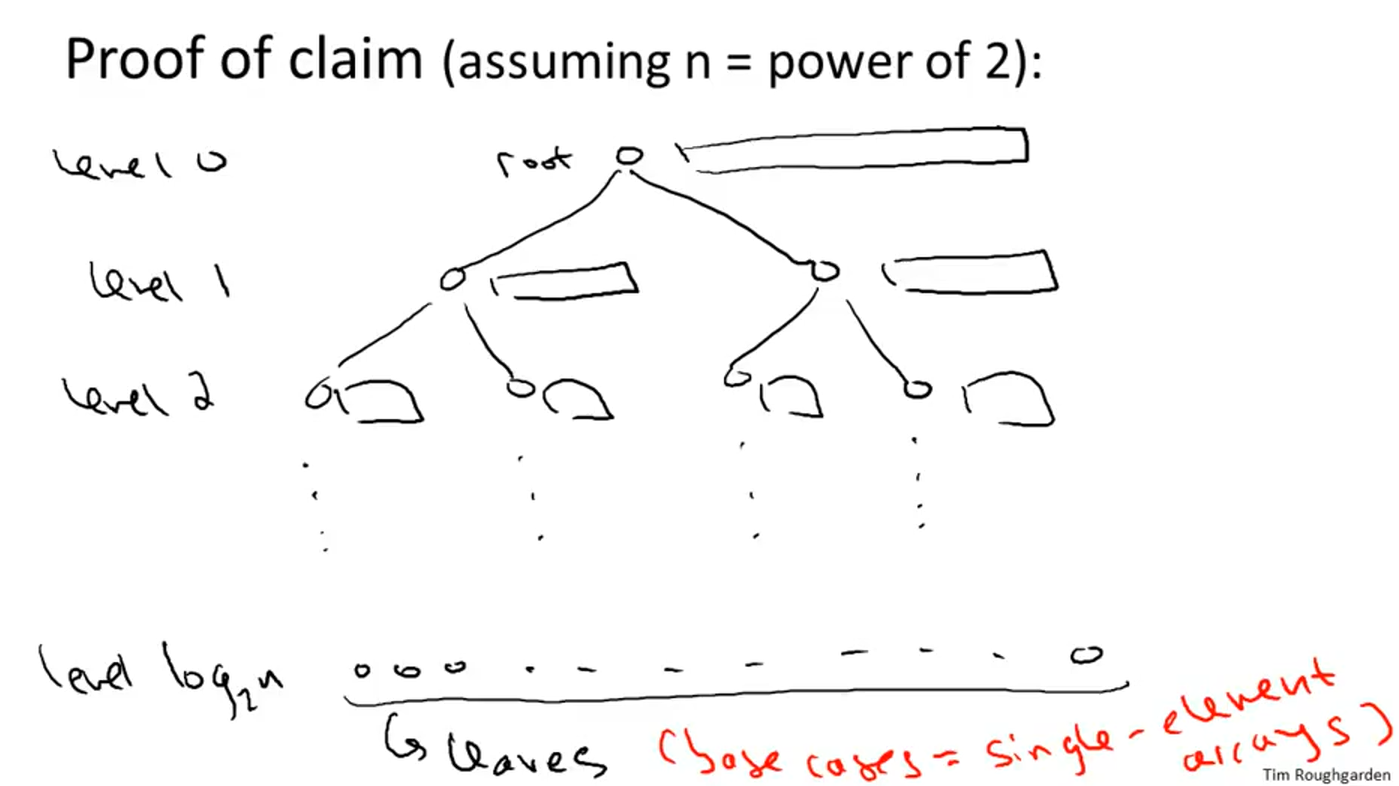 Proof of claim (assuming n = power of 2):
level 0 root
level 1
level 2
level log₂n
leaves (base cases = single-element
arrays)
Tim Roughgarden